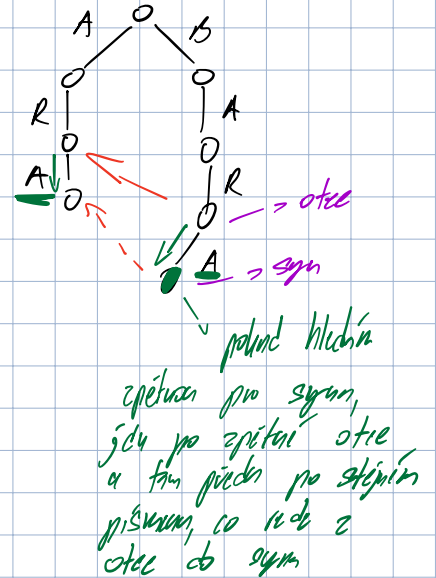 A
B
R
A
A
R
otec
A
syn
pokud hledám
zpětnou pro syna,
jdu po zpětné otce
a tam přejdu po stejném
písmenu, co vede z
otce do syna